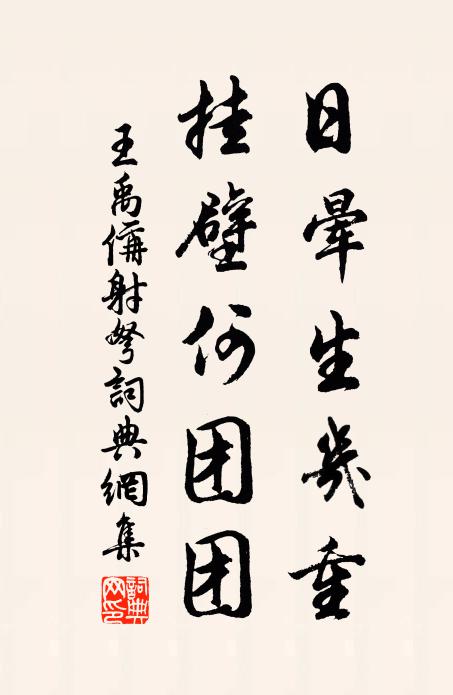 日暈生幾重
挂壁何团团
王禹偁射弩詞典網集
詞典網印